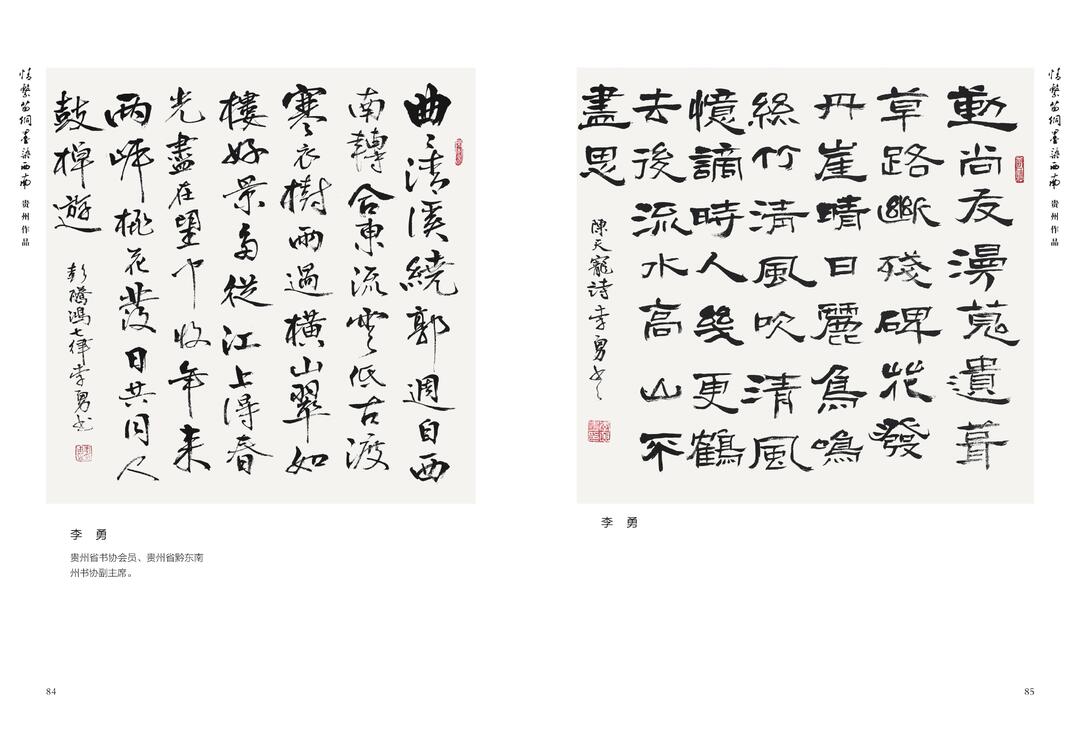 情繫苗侗墨染西南 贵州作品
曲〻清溪繞郭週自西
南轉合東流雲低古渡
寒衣樹雨過橫山翠如
樓好景多從江上得春
光盡在望中收年来
兩岸桃花發日共同人
鼓棹遊
彭騰鴻七律李勇书
李 勇
贵州省书协会员、贵州省黔东南
州书协副主席。
84
情繫苗侗墨染西南 贵州作品
動尚友漫蒐遺葺
草路斷殘碑花發
丹崖晴日麗鳥鳴
絲竹清風吹清風
憶謫時人幾更鶴
去後流水高山不
盡思
陳天寵詩李勇书
李 勇
85